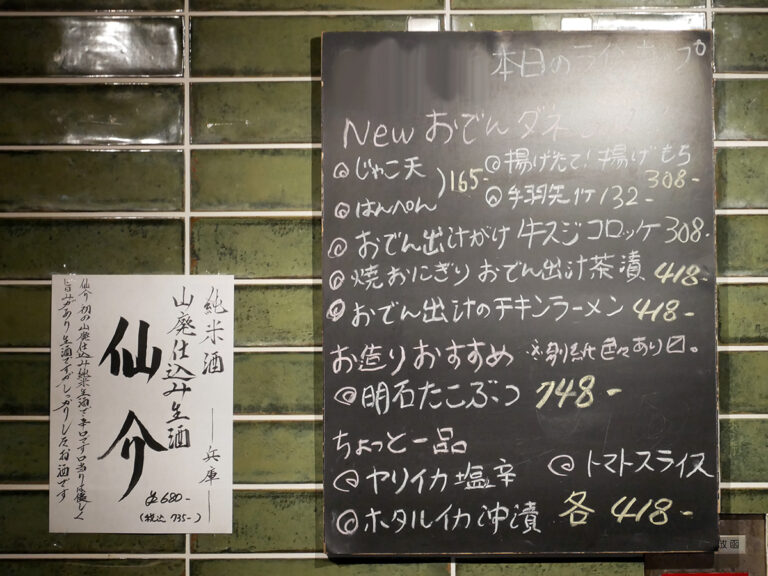 本日のラインナップ
New おでんダネ
じゃこ天
はんぺん
165-
揚げたて!揚げもち
308-
手羽先 1ケ 132-
おでん出汁がけ 牛スジコロッケ 308-
焼おにぎり おでん出汁茶漬 418-
おでん出汁のチキンラーメン 418-
お造りおすすめ ※別紙色々あり〼。
明石たこぶつ 748-
ちょっと一品
ヤリイカ塩辛
トマトスライス
ホタルイカ沖漬
各 418-
純米酒
―兵庫―
山廃仕込み生酒
仙介
¥680-
(税込 735-)
仙介初の山廃仕込み純米生酒で辛口です口当りは優しく
旨みがあり生酒ですがしっかりしたお酒です